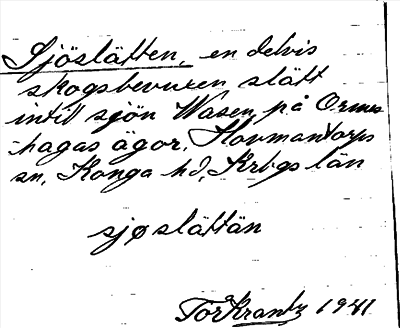 Sjöslätten, en delvis
skogsbevuxen slätt
intill sjön Wasen på Ormes-
hagas ägor, Hovmantorps
sn, Konga hd, Krbgs län
sjøslättän
Tor Krantz 1941